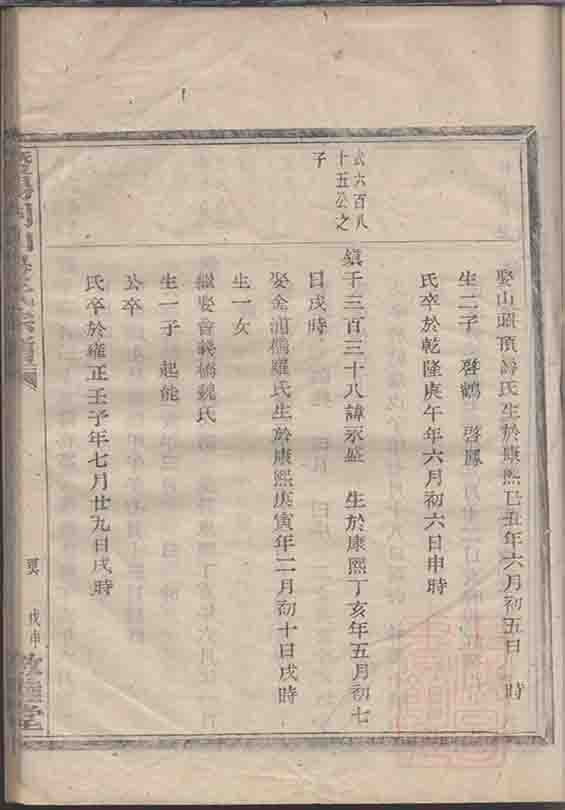 娶山頭頂馮氏生於康熙己丑年六月初五日 時
生二子 啓鶴 啓鳳
氏卒於乾隆庚午年六月初六日申時
式六百八
十五公之
子
鎮千三百三十八諱永盛 生於康熙丁亥年五月初七
日戌時
娶金浦橋羅氏生於康熙庚寅年二月初十日戌時
生一女
繼娶會義橋魏氏
生一子 起能
公卒
氏卒於雍正壬子年七月廿九日戌時
戊申
敦睦堂